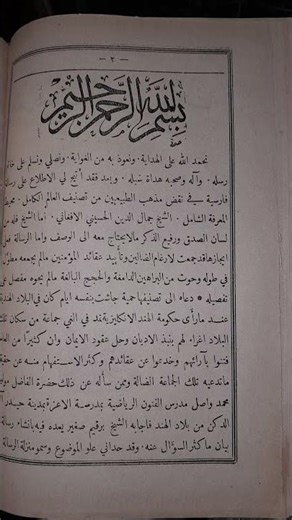 - ٢ -
بسم الله الرحمن الرحيم
نحمد الله على الهداية ونعوذ به من الغواية ونصلي ونسلم على خاتم
رسله وآله وصحبه هداة سبله وبعد فقد أتيح لي الاطلاع على رسالة
فارسية في نقض مذهب الطبيعيين من تصانيف العالم الكامل محيط
المعرفة الشامل الشيخ جمال الدين الحسيني الافغاني أما الشيخ فله من
لسان الصدق ورفيع الذكر مالايحتاج معه الى الوصف واما الرسالة فعلى
ايجازها قد جمعت لارغام الضالين وتأييد عقائد المؤمنين مالم يجمعه مطول
في طوله وحوت من البراهين الدامغة والحجج البالغة مالم يحوه مفصل على
تفصيله دعاه الى تصنيفها حمية جاشت بنفسه ايام كان في البلاد الهندية
عند مارأى حكومة الهند الانكليزية تمد في الغي جماعة من سكان تلك
البلاد اغراء لهم بنبذ الاديان وحل عقود الايمان وان كثيرا من العامة
فتنوا بآرائهم وخدعوا عن عقائدهم وكثر الاستفهام منه عن حقيقة
ماتدعيه تلك الجماعة الضالة وممن سأله عن ذلك حضرة الفاضل مولوي
محمد واصل مدرس الفنون الرياضية بمدرسة الاعزة بمدينة حيدر آباد
الدكن من بلاد الهند فاجابه الشيخ برقيم صغير يعده فيه بانشاء رسالة في
بيان ماكثر السؤال عنه وقد حداني علو الموضوع وسمو منزلة الرسالة